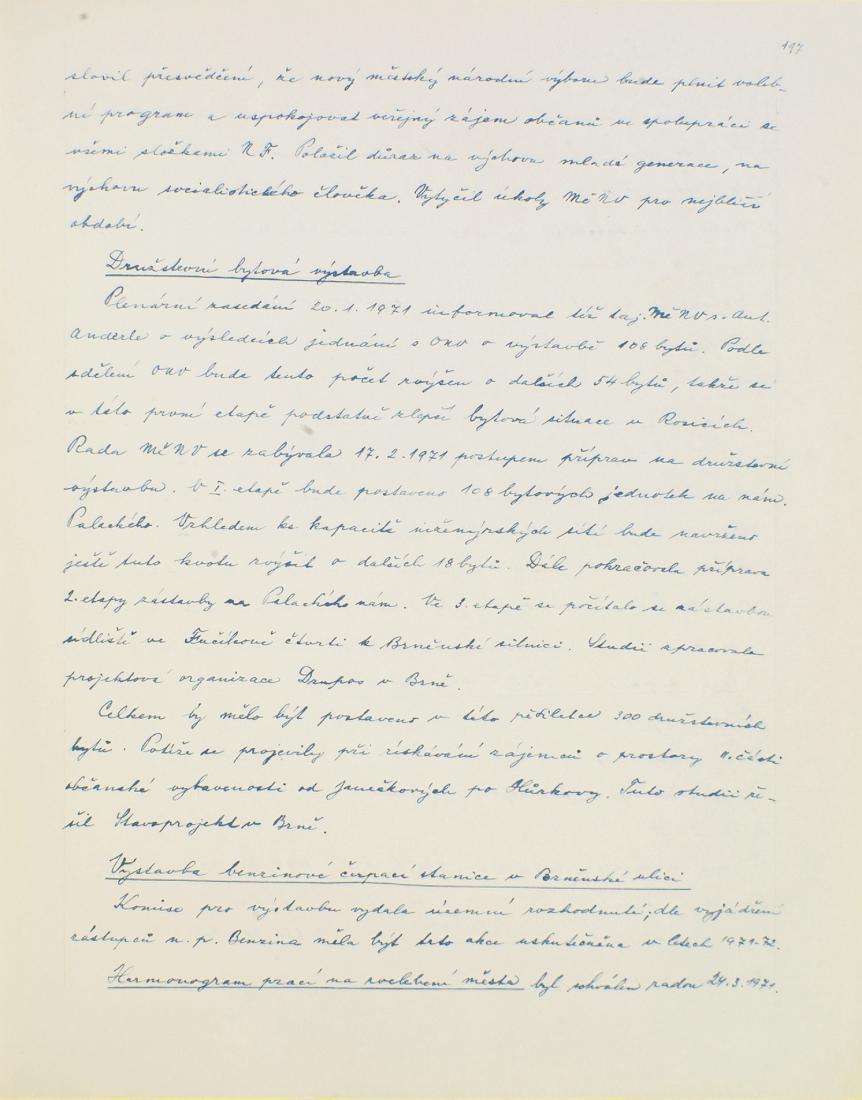 197
slovil přesvědčení, že nový městský národní výbor bude plnit voleb-
ní program a uspokojovat veřejný zájem občanů ve spolupráci se
všemi složkami N F. Položil důraz na výchovu mladé generace, na
výchovu socialistického člověka. Vytyčil úkoly MěNV pro nejbližší
období.
Družstevní bytová výstavba
Plenární zasedání 20.1.1971 informoval též taj. MěNV s. Ant.
Anderle o výsledcích jednání s ONV o výstavbě 108 bytů. Podle
sdělení ONV bude tento počet zvýšen o dalších 54 bytů, takže se
v této první etapě podstatně zlepší bytová situace v Rosicích.
Rada MěNV se zabývala 17.2.1971 postupem příprav na družstevní
výstavbu. V I. etapě bude postaveno 108 bytových jednotek na nám.
Palackého. Vzhledem ke kapacitě inženýrských sítí bude navrženo
ještě tuto kvotu zvýšit o dalších 18 bytů. Dále pokračovala příprava
2. etapy zástavby na Palackého nám. Ve 3. etapě se počítalo se zástavbou
sídliště ve Fučíkově čtvrti k Brněnské silnici. Studii zpracovala
projektová organizace Drupos v Brně.
Celkem by mělo být postaveno v této pětiletce 300 družstevních
bytů. Potíže se projevily při získávání zájemců o prostory II. části
občanské vybavenosti od Janečkových po Hůrkovy. Tuto studii ře-
šil Stavoprojekt v Brně.
Výstavba benzinové čerpací stanice v Brněnské ulici
Komise pro výstavbu vydala územní rozhodnutí; dle vyjádření
zástupců n. p. Benzina měla být tato akce uskutečněna v letech 1971-72.
Harmonogram prací na zvelebení města byl schválen radou 24.3.1971.